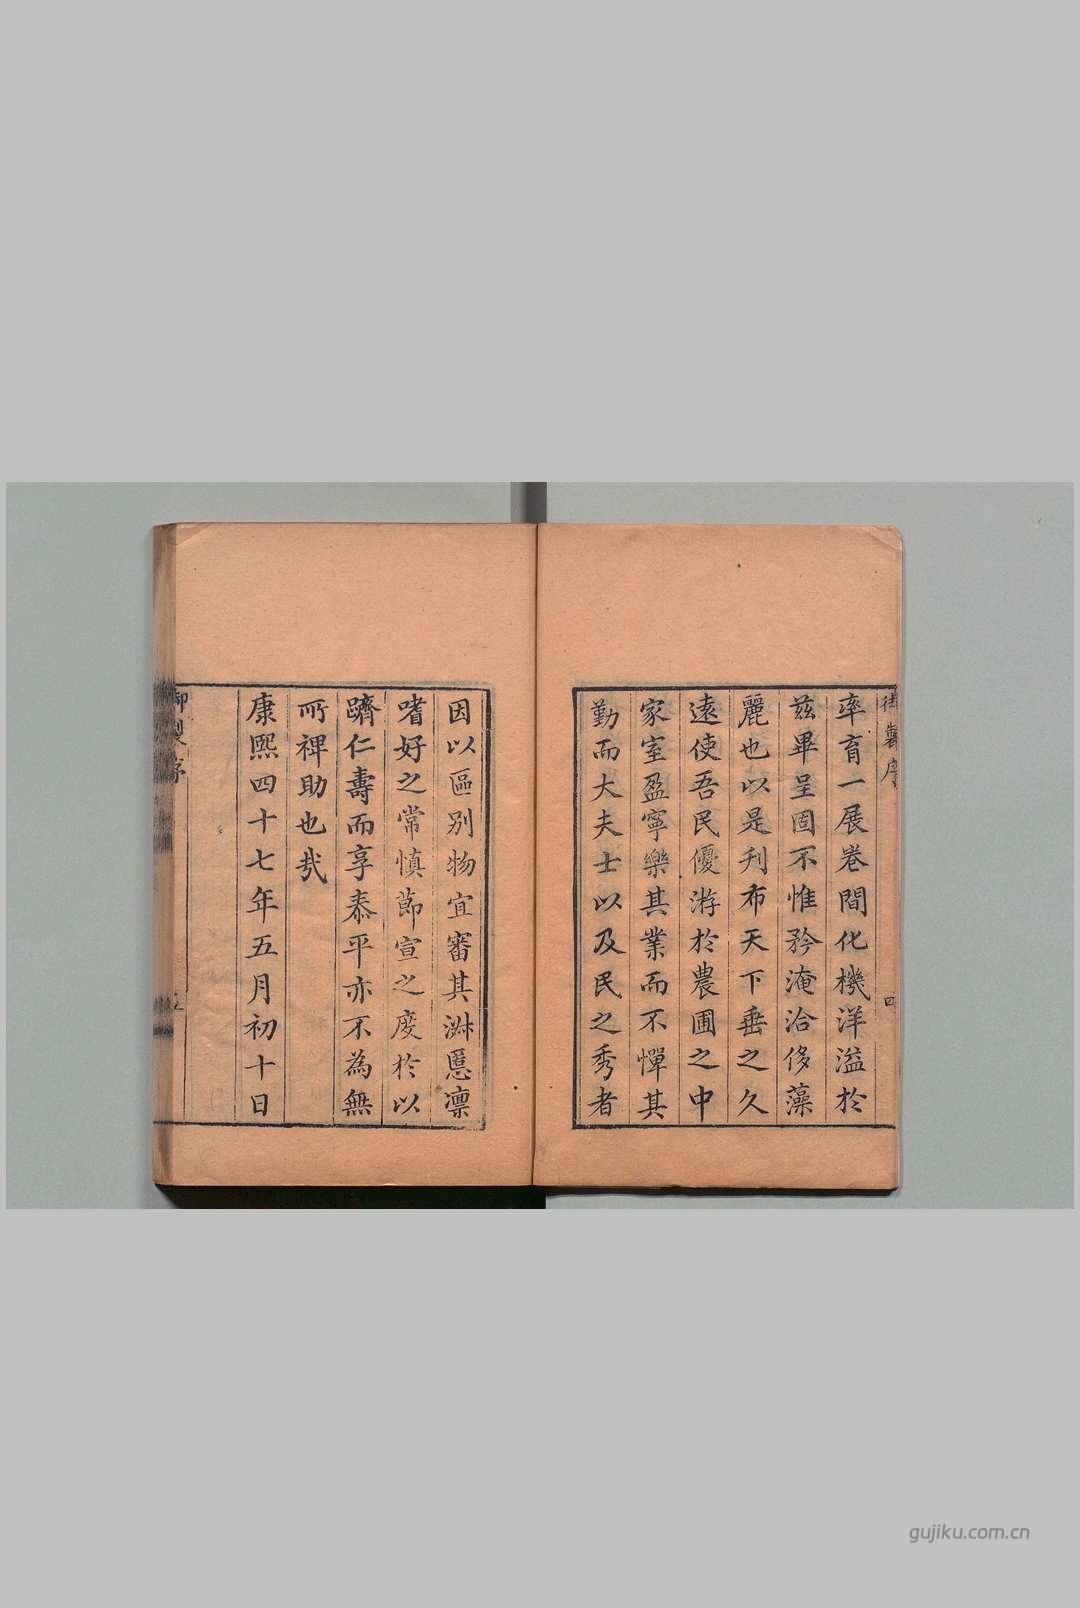 御製序
四
率育一展卷間化機洋溢於
茲畢呈固不惟矜淹洽侈藻
麗也以是刋布天下垂之久
遠使吾民優游於農圃之中
家室盈寧樂其業而不憚其
勤而大夫士以及民之秀者
因以區別物宜審其淑慝凛
嗜好之常慎莭宣之度於以
躋仁壽而享泰平亦不為無
所裨助也㦲
康熙四十七年五月初十日
御製序
gujiku.com.cn